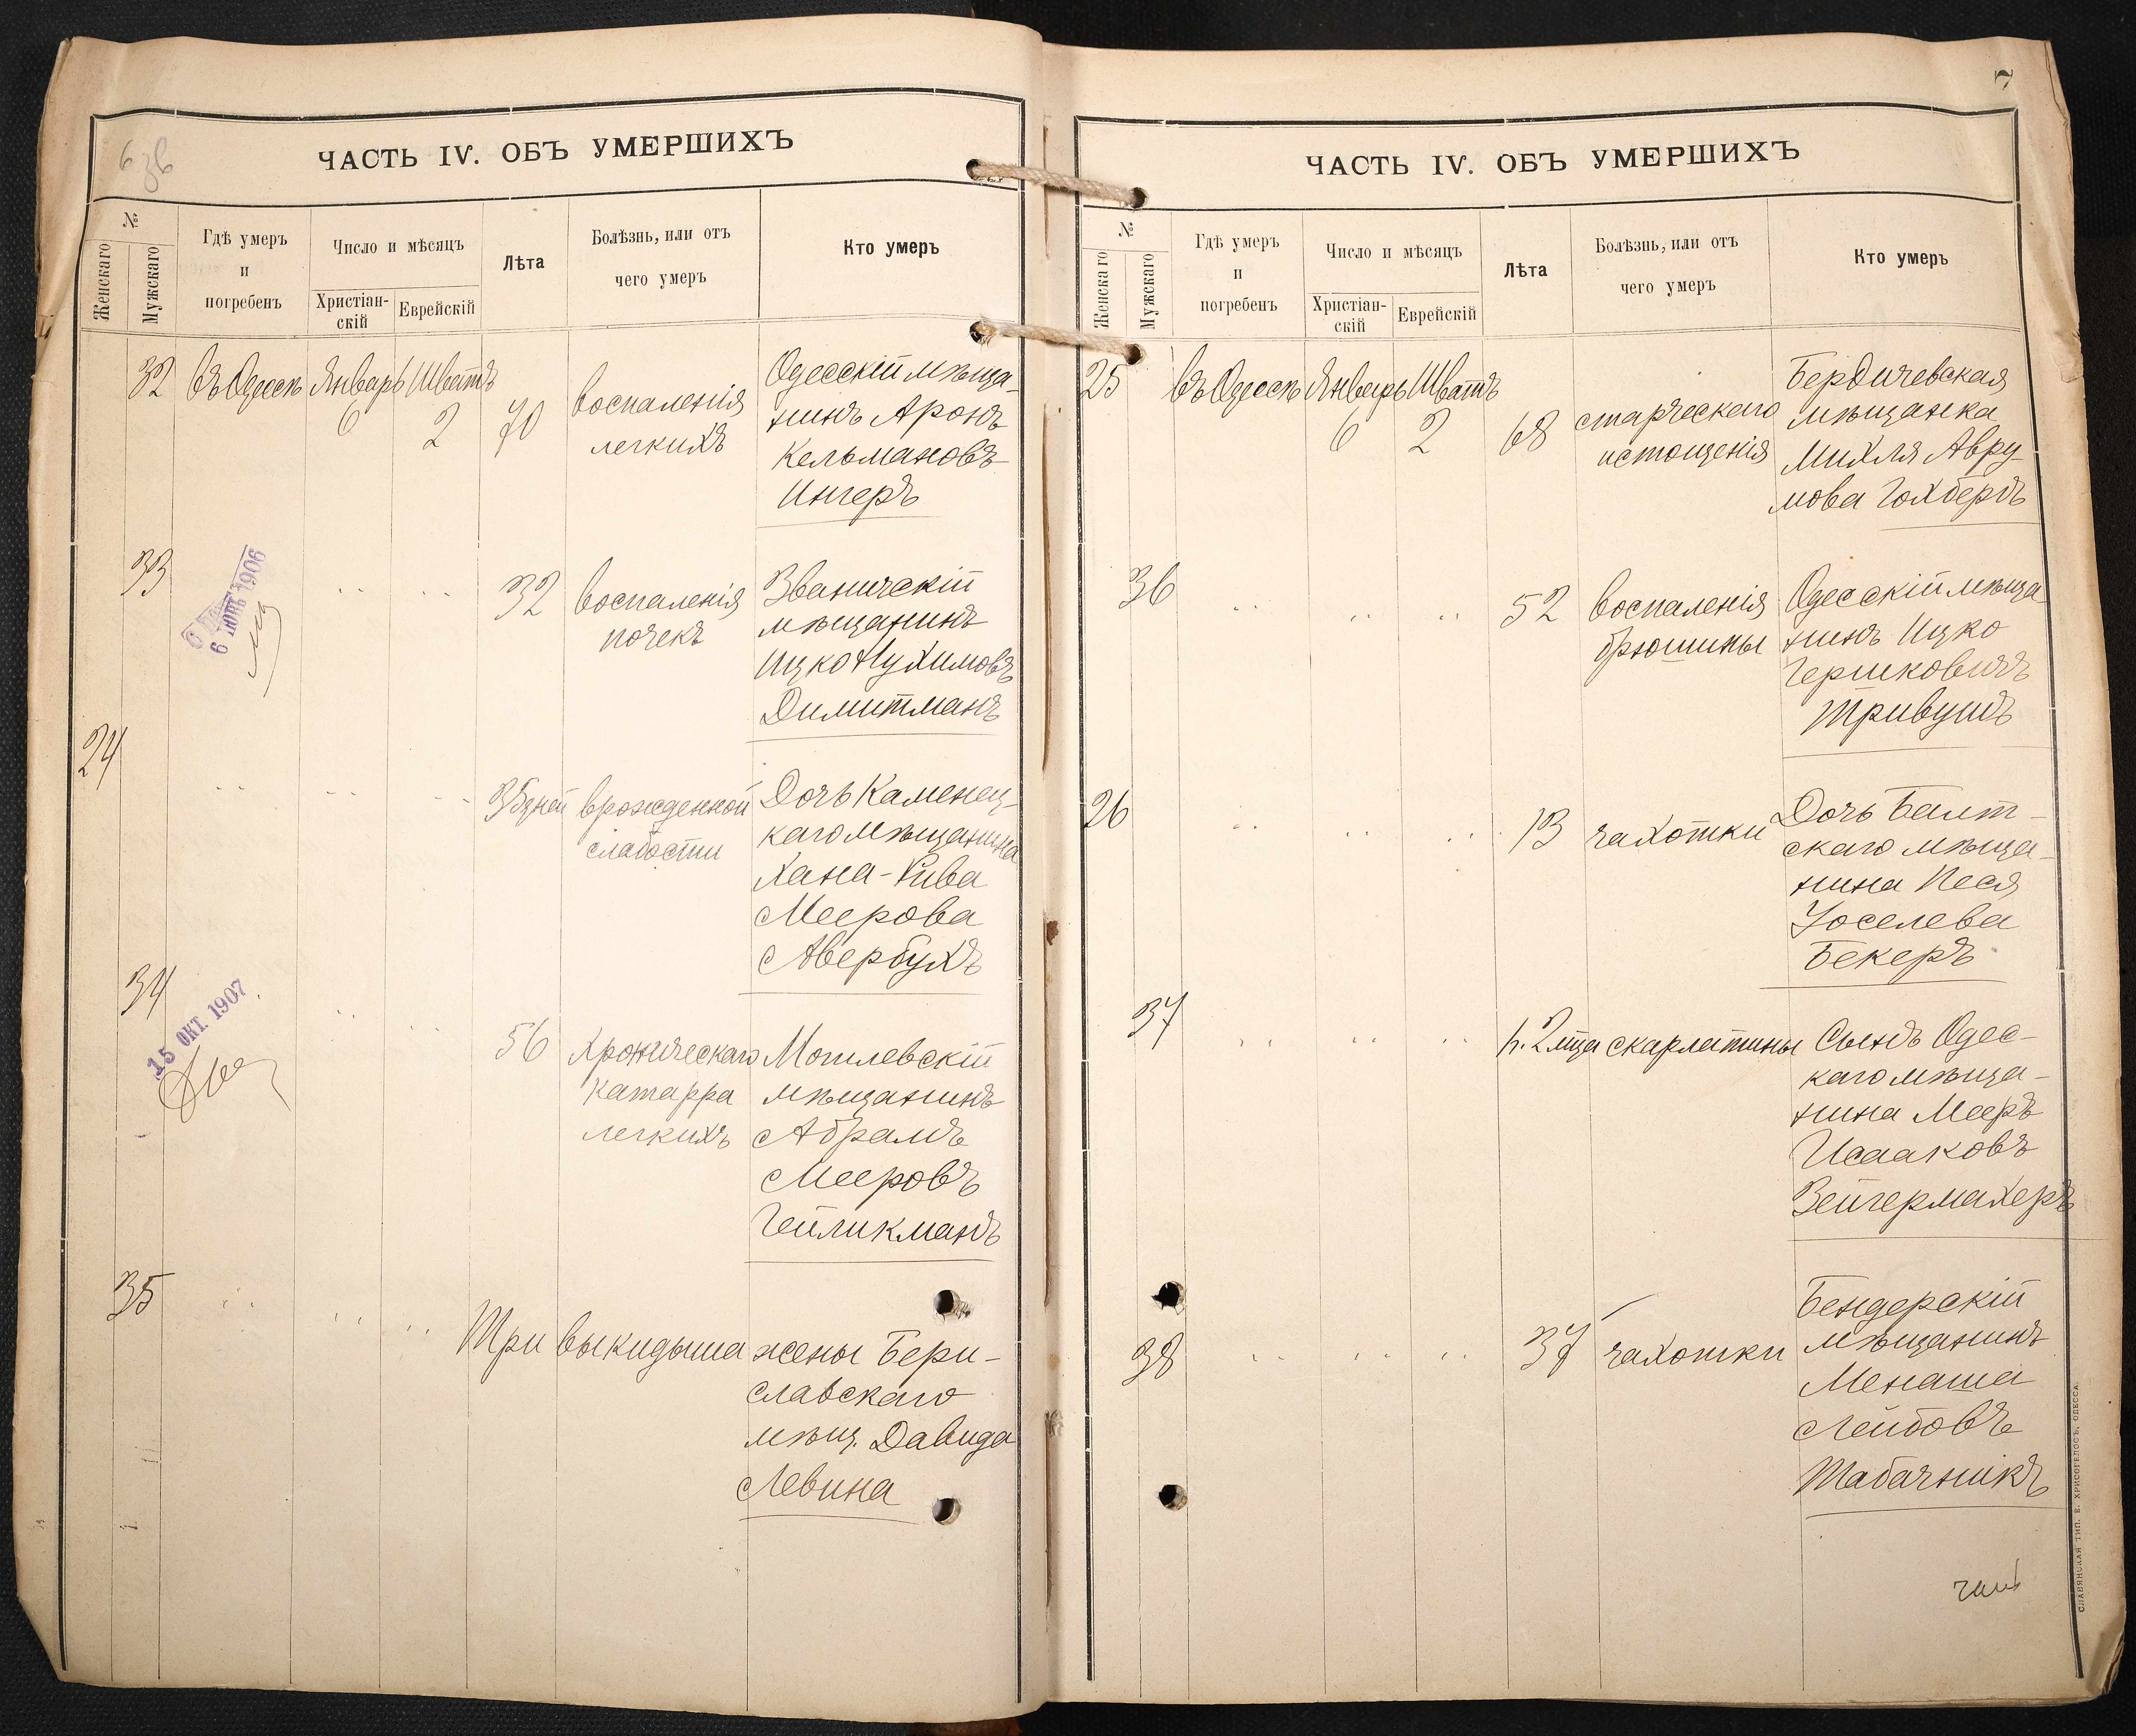 6 зв
ЧАСТЬ IV. ОБЪ УМЕРШИХЪ
№
Женскаго
Мужскаго
Гдѣ умеръ
и
погребенъ
Число и мѣсяцъ
Христіан-
скій
Еврейскій
Лѣта
Болѣзнь, или отъ
чего умеръ
Кто умеръ
32 въ Одессѣ Январь Шватъ
6 2 70
воспаленія
легкихъ
Одесскій мѣща-
нинъ Аронъ
Кельмановъ
Ингеръ
33
6 ІЮНЬ 1906
32 воспаленія
почекъ
Званичскій
мѣщанинъ
Ицко Нухимовъ
Димитманъ
24
35 дней врожденной
слабости
Дочь Каменец-
каго мѣщанина
Хана-Рива
Меерова
Авербухъ
34
15 ОКТ. 1907
56 хроническаго
катарра
легкихъ
Могилевскій
мѣщанинъ
Абрамъ
Мееровъ
Гейликманъ
35
Три выкидыша жены Бери-
славскаго
мѣщ. Давида
Левина
7
ЧАСТЬ IV. ОБЪ УМЕРШИХЪ
№
Женскаго
Мужскаго
Гдѣ умеръ
и
погребенъ
Число и мѣсяцъ
Христіан-
скій
Еврейскій
Лѣта
Болѣзнь, или отъ
чего умеръ
Кто умеръ
25 въ Одессѣ Январь Шватъ
6 2 68
старческаго
истощенія
Бердичевская
мѣщанка
Михля Авру-
мова Гохбергъ
36
52 воспаленія
брюшины
Одесскій мѣща
нинъ Ицко
Гершковичъ
Тривушъ
26
13 чахотки
Дочь Балт-
скаго мѣща-
нина Песя
Іоселева
Бекеръ
37
2 мца скарлатины
Сынъ Одес-
каго мѣща-
нина Мееръ
Исааковъ
Зейгермахеръ
38
37 чахотки
Бендерскій
мѣщанинъ
Менаша
Лейбовъ
Табачникъ
СЛАВЯНСКАЯ ТИП. Е. ХРИСОГЕЛОСЪ, ОДЕССА.